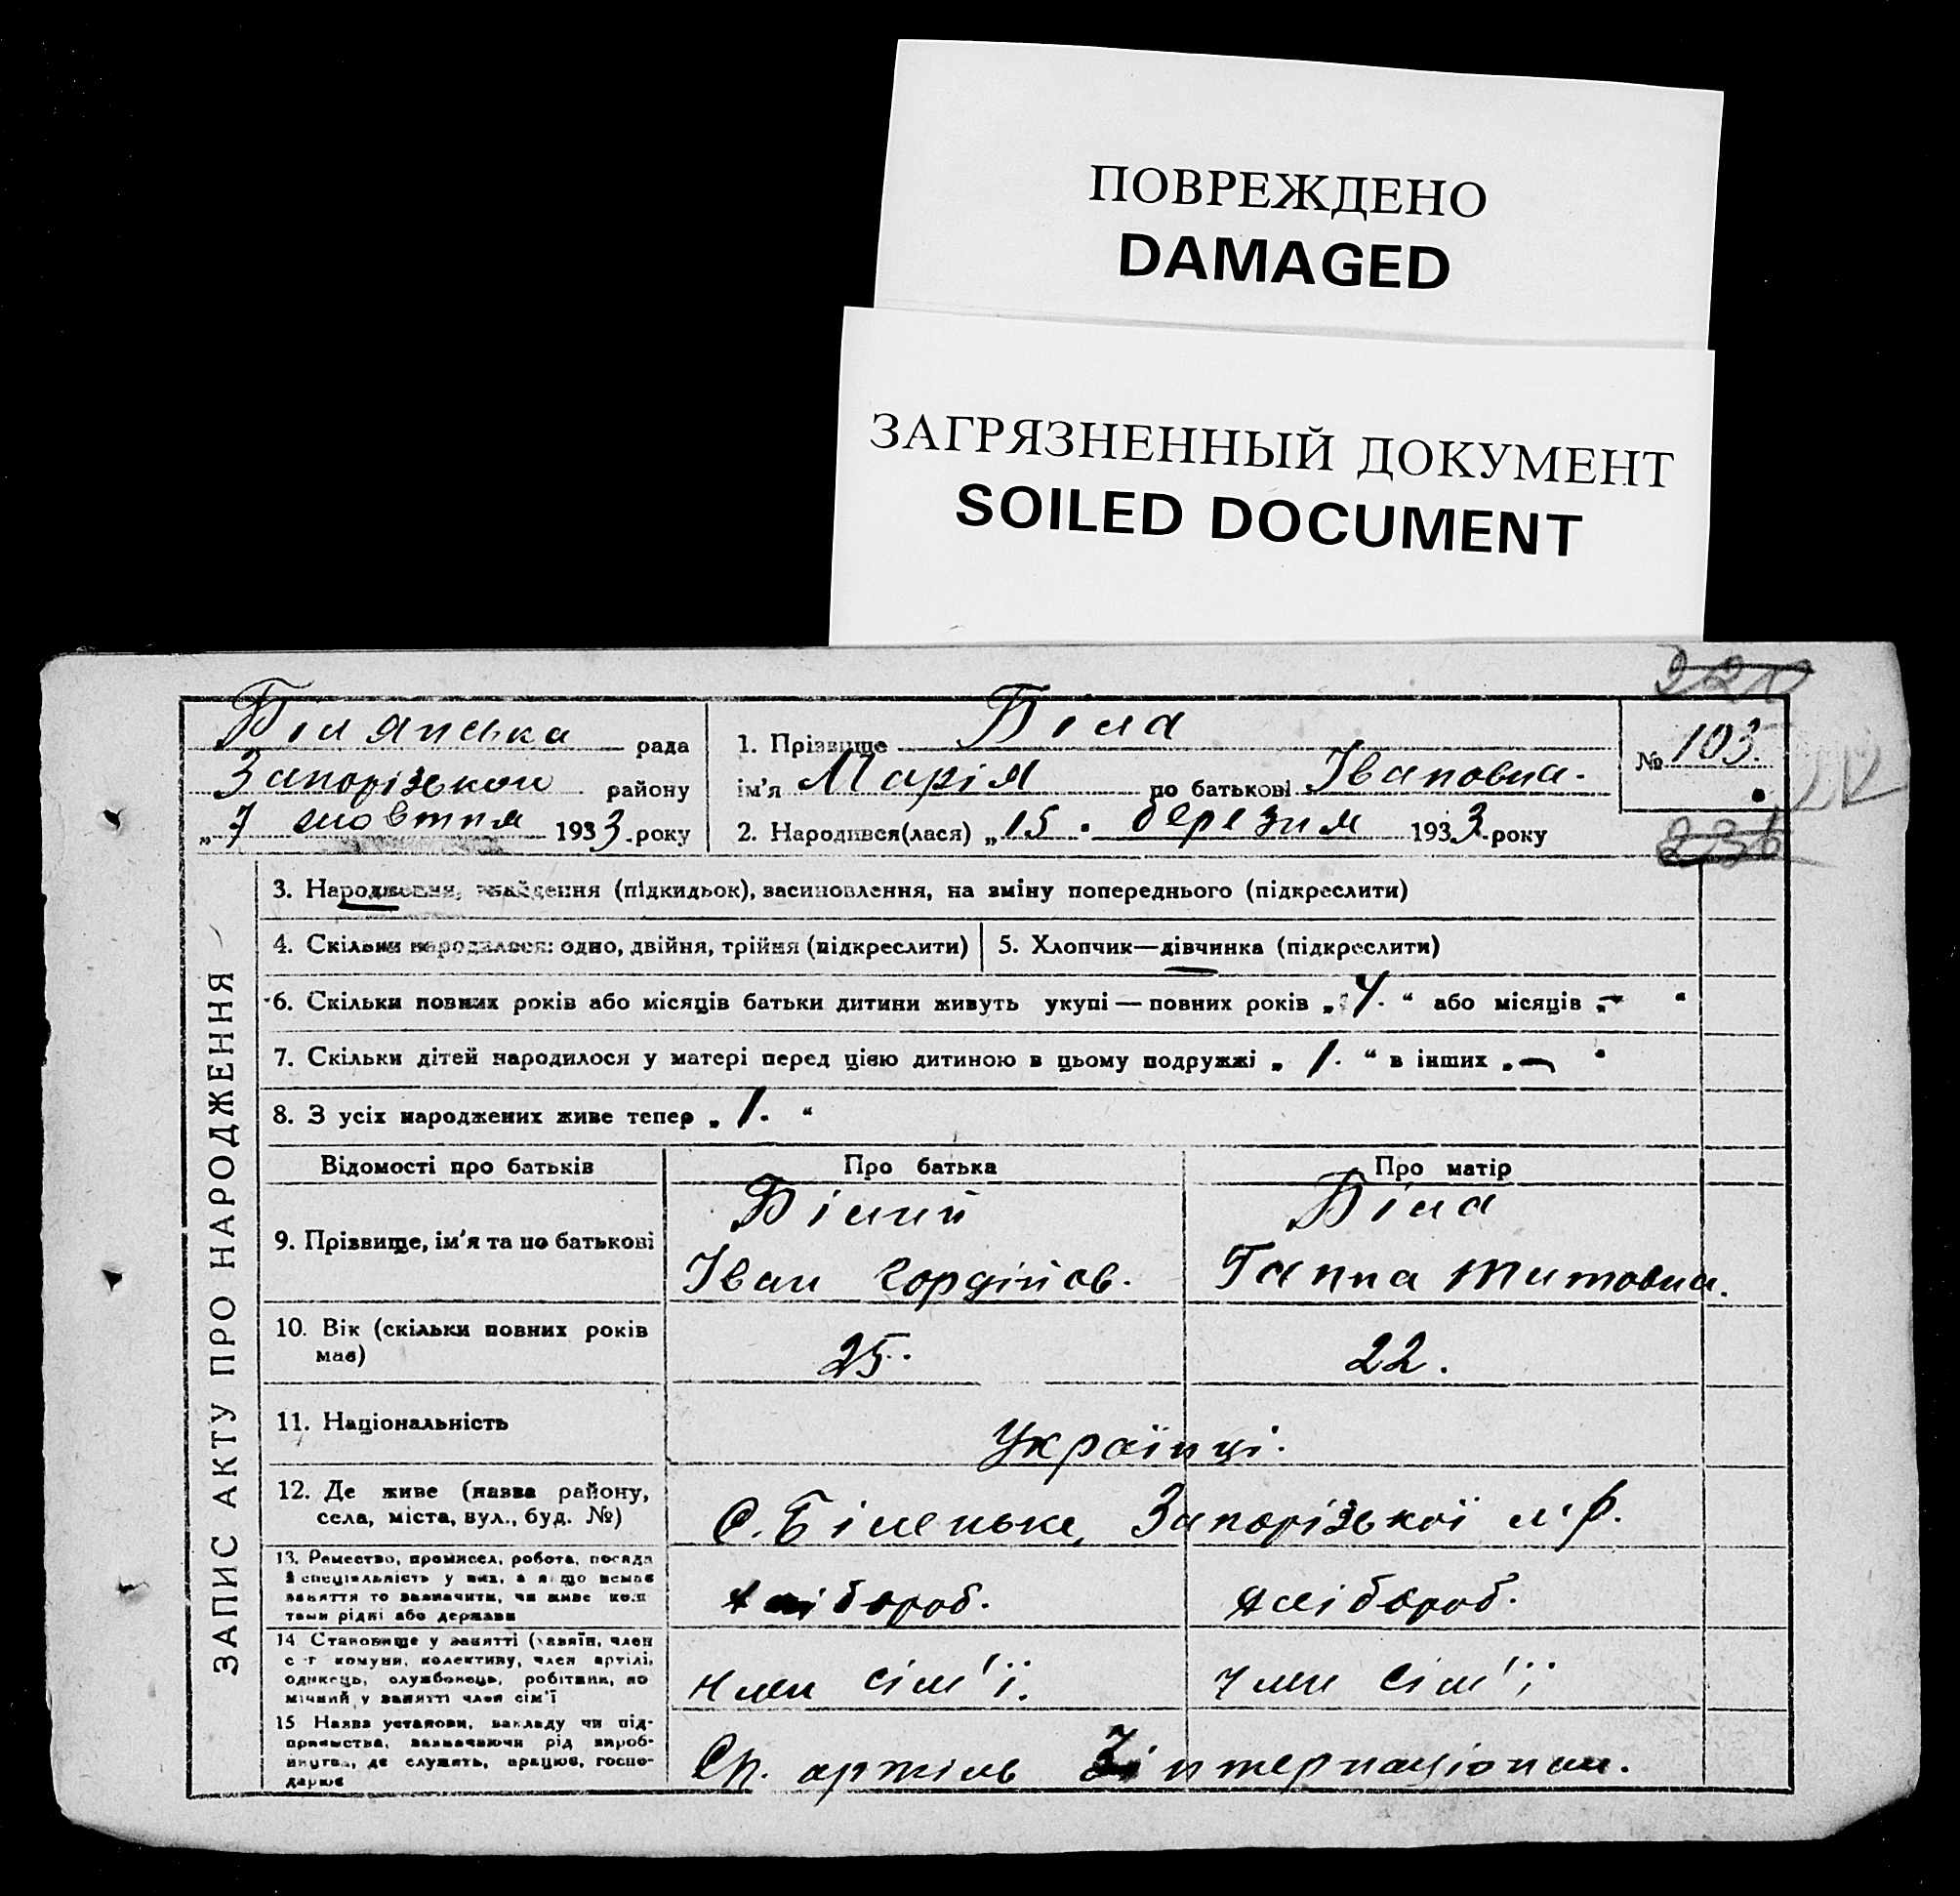 ПОВРЕЖДЕНО
DAMAGED
ЗАГРЯЗНЕННЫЙ ДОКУМЕНТ
SOILED DOCUMENT
Білянська рада
Запорізької району
„7 жовтня 1933 року
1. Прізвище Біла
ім'я Марія по батькові Івановна.
2. Народився(лася) „15. березня 1933 року
№ 103.
236
ЗАПИС АКТУ ПРО НАРОДЖЕННЯ
3. Народження, знайдення (підкидьок), засиновлення, на зміну попереднього (підкреслити)
4. Скільки народилося: одно, двійня, трійня (підкреслити)
5. Хлопчик—дівчинка (підкреслити)
6. Скільки повних років або місяців батьки дитини живуть укупі — повних років „4. “ або місяців „- “
7. Скільки дітей народилося у матері перед цією дитиною в цьому подружжі „ 1. “ в інших „— “
8. З усіх народжених живе тепер „ 1. “
Відомості про батьків Про батька Про матір
9. Прізвище, ім'я та по батькові
Білий
Іван Гордійов.
Біла
Ганна Титовна.
10. Вік (скільки повних років має)
25. 22.
11. Національність
Українці.
12. Де живе (назва району, села, міста, вул., буд. №)
С. Біленьке, Запорізької м.р.
13. Ремество, промисел, робота, посада й спеціяльність у них, а якщо немає заняття то зазначити, чи живе коштами рідні або держави
хлібороб. хлібороб.
14 Становище у занятті (хазяїн, член с-г комуни, колективу, член артілі, одинець, службовець, робітник, помічний у занятті член сім'ї
член сім'ї. член сім'ї
15 Назва установи, закладу чи підприємства, зазначаючи рід виробництва, де служить, працює, господарює
Сп. артіль Інтернаціонал.